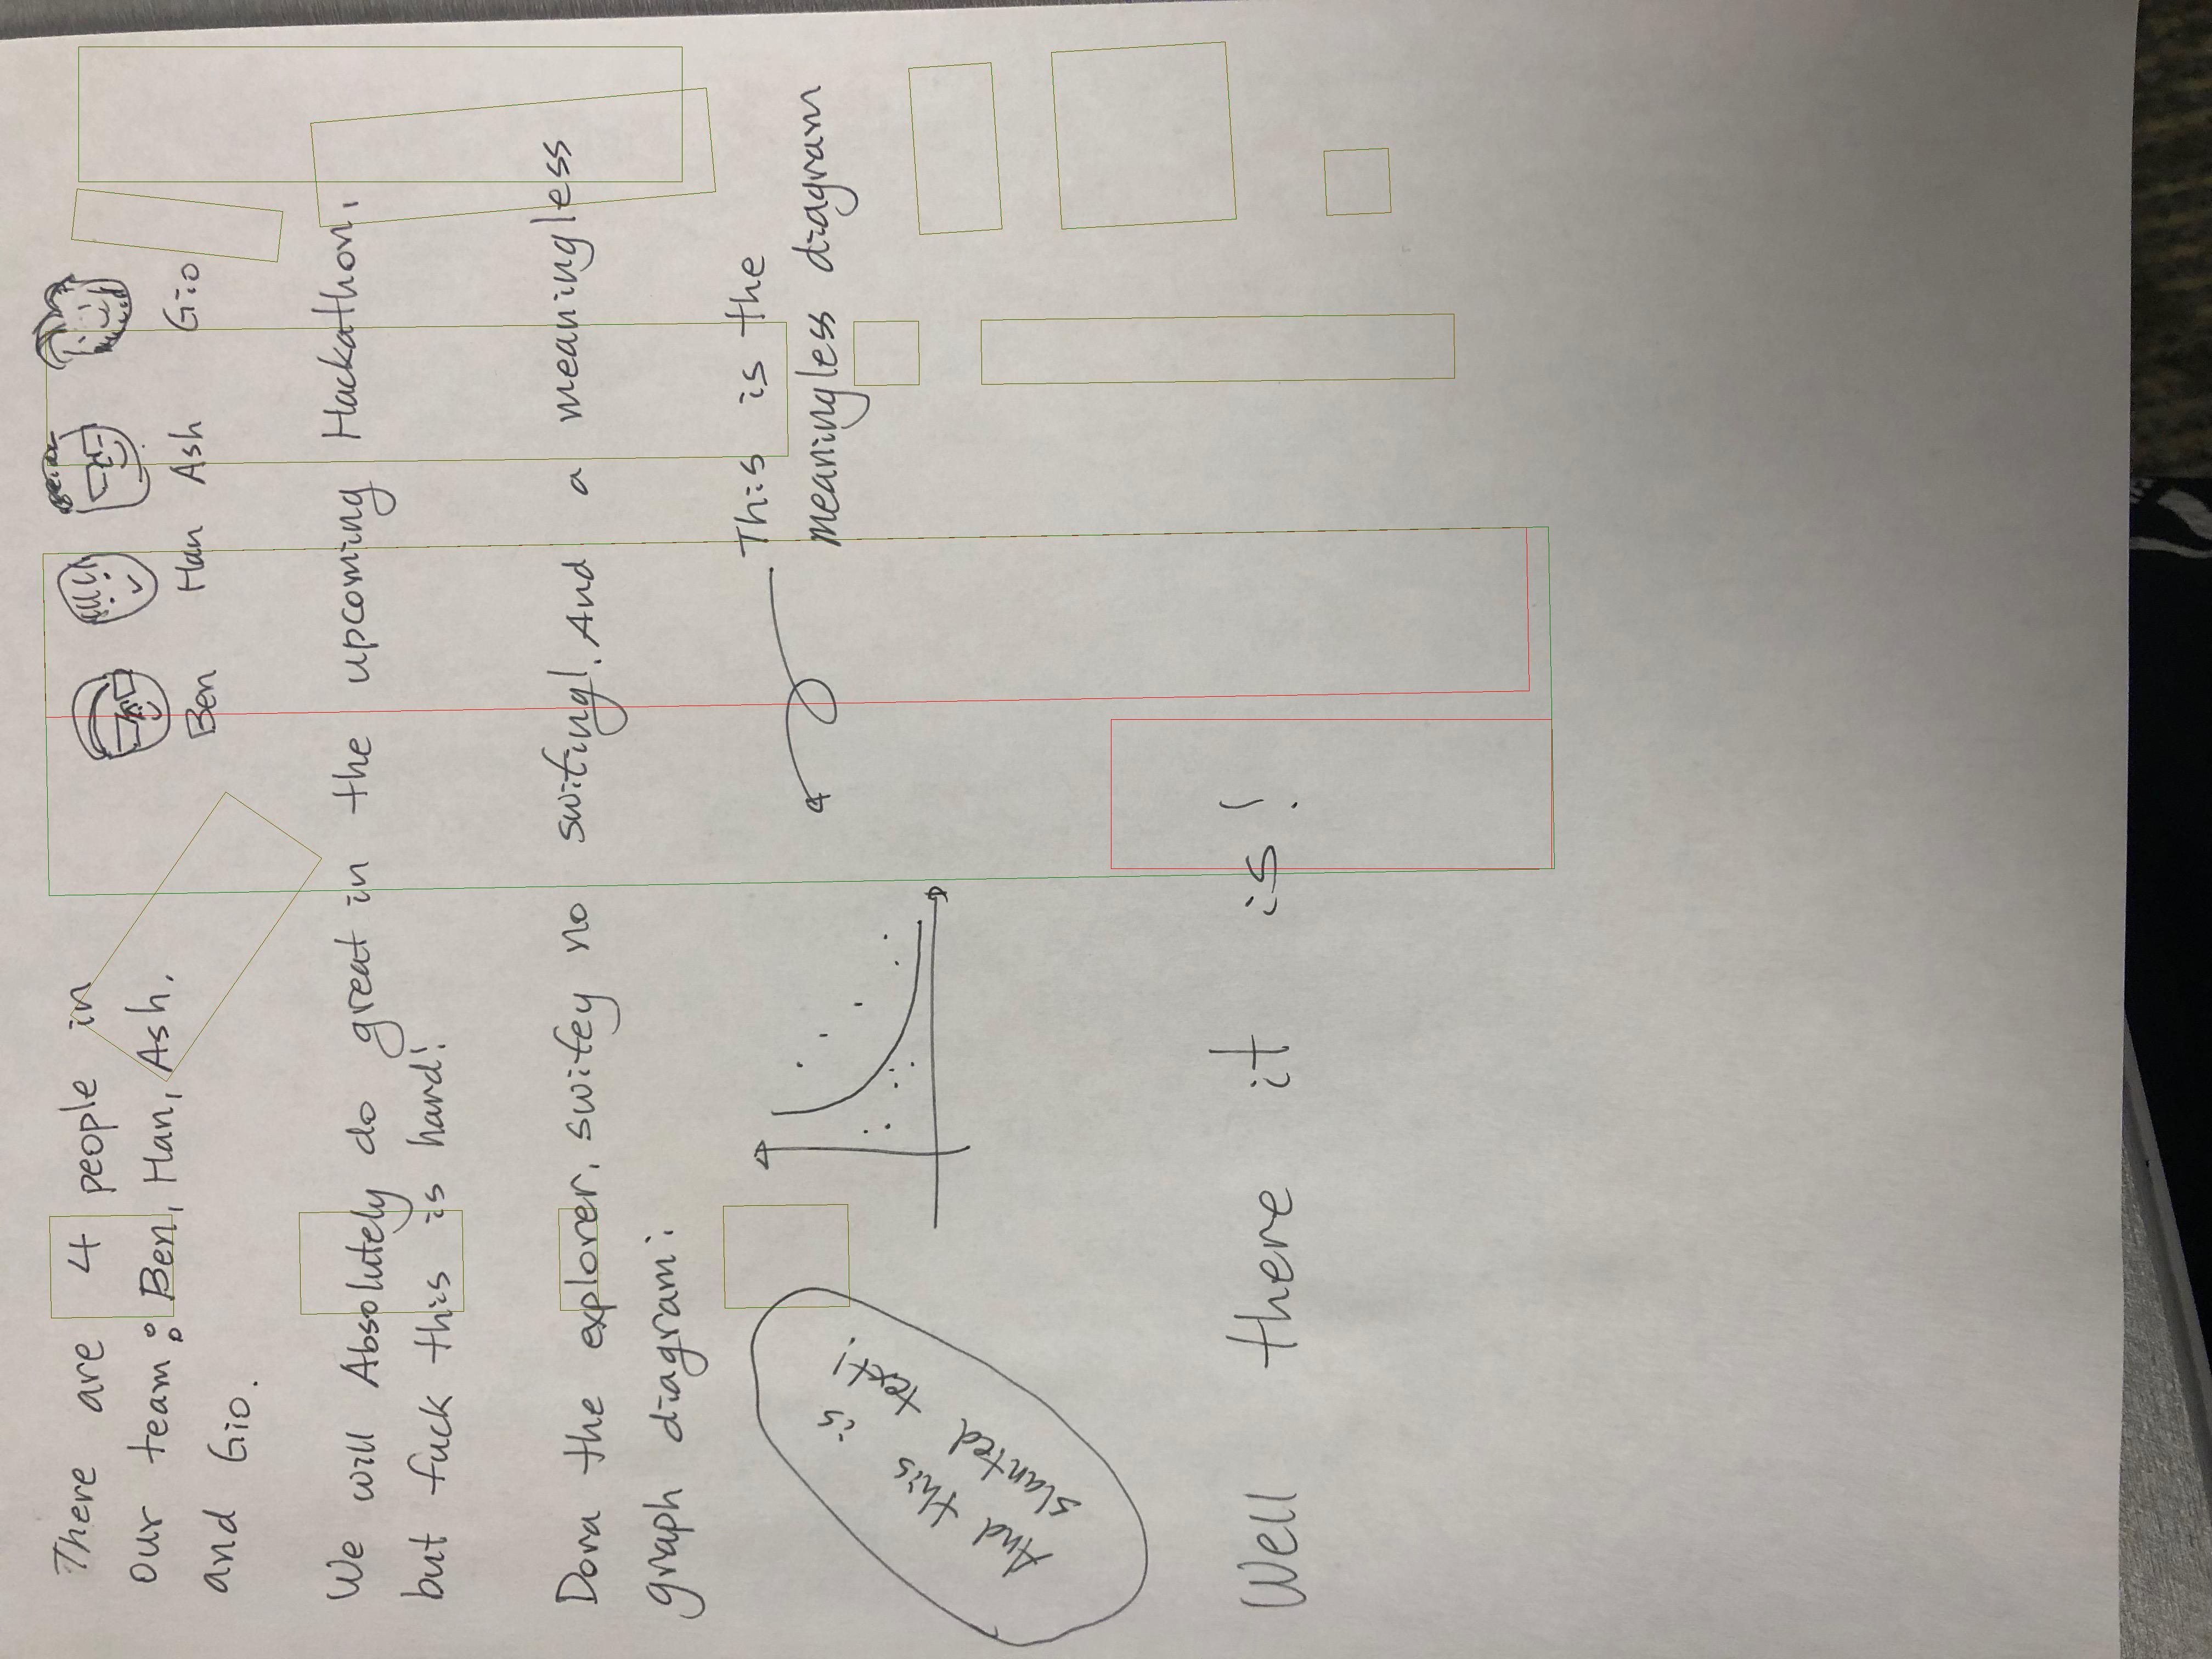 There are 4 people in
our team: Ben, Han, Ash,
and Gio.
Ben Han Ash Gio
We will Absolutely do great in the upcoming Hackathon,
but fuck this is hard!
Dora the explorer, swifey no swifing! And a meaningless
graph diagram:
This is the
meaningless diagram
And this is
slanted text.
Well there it is!